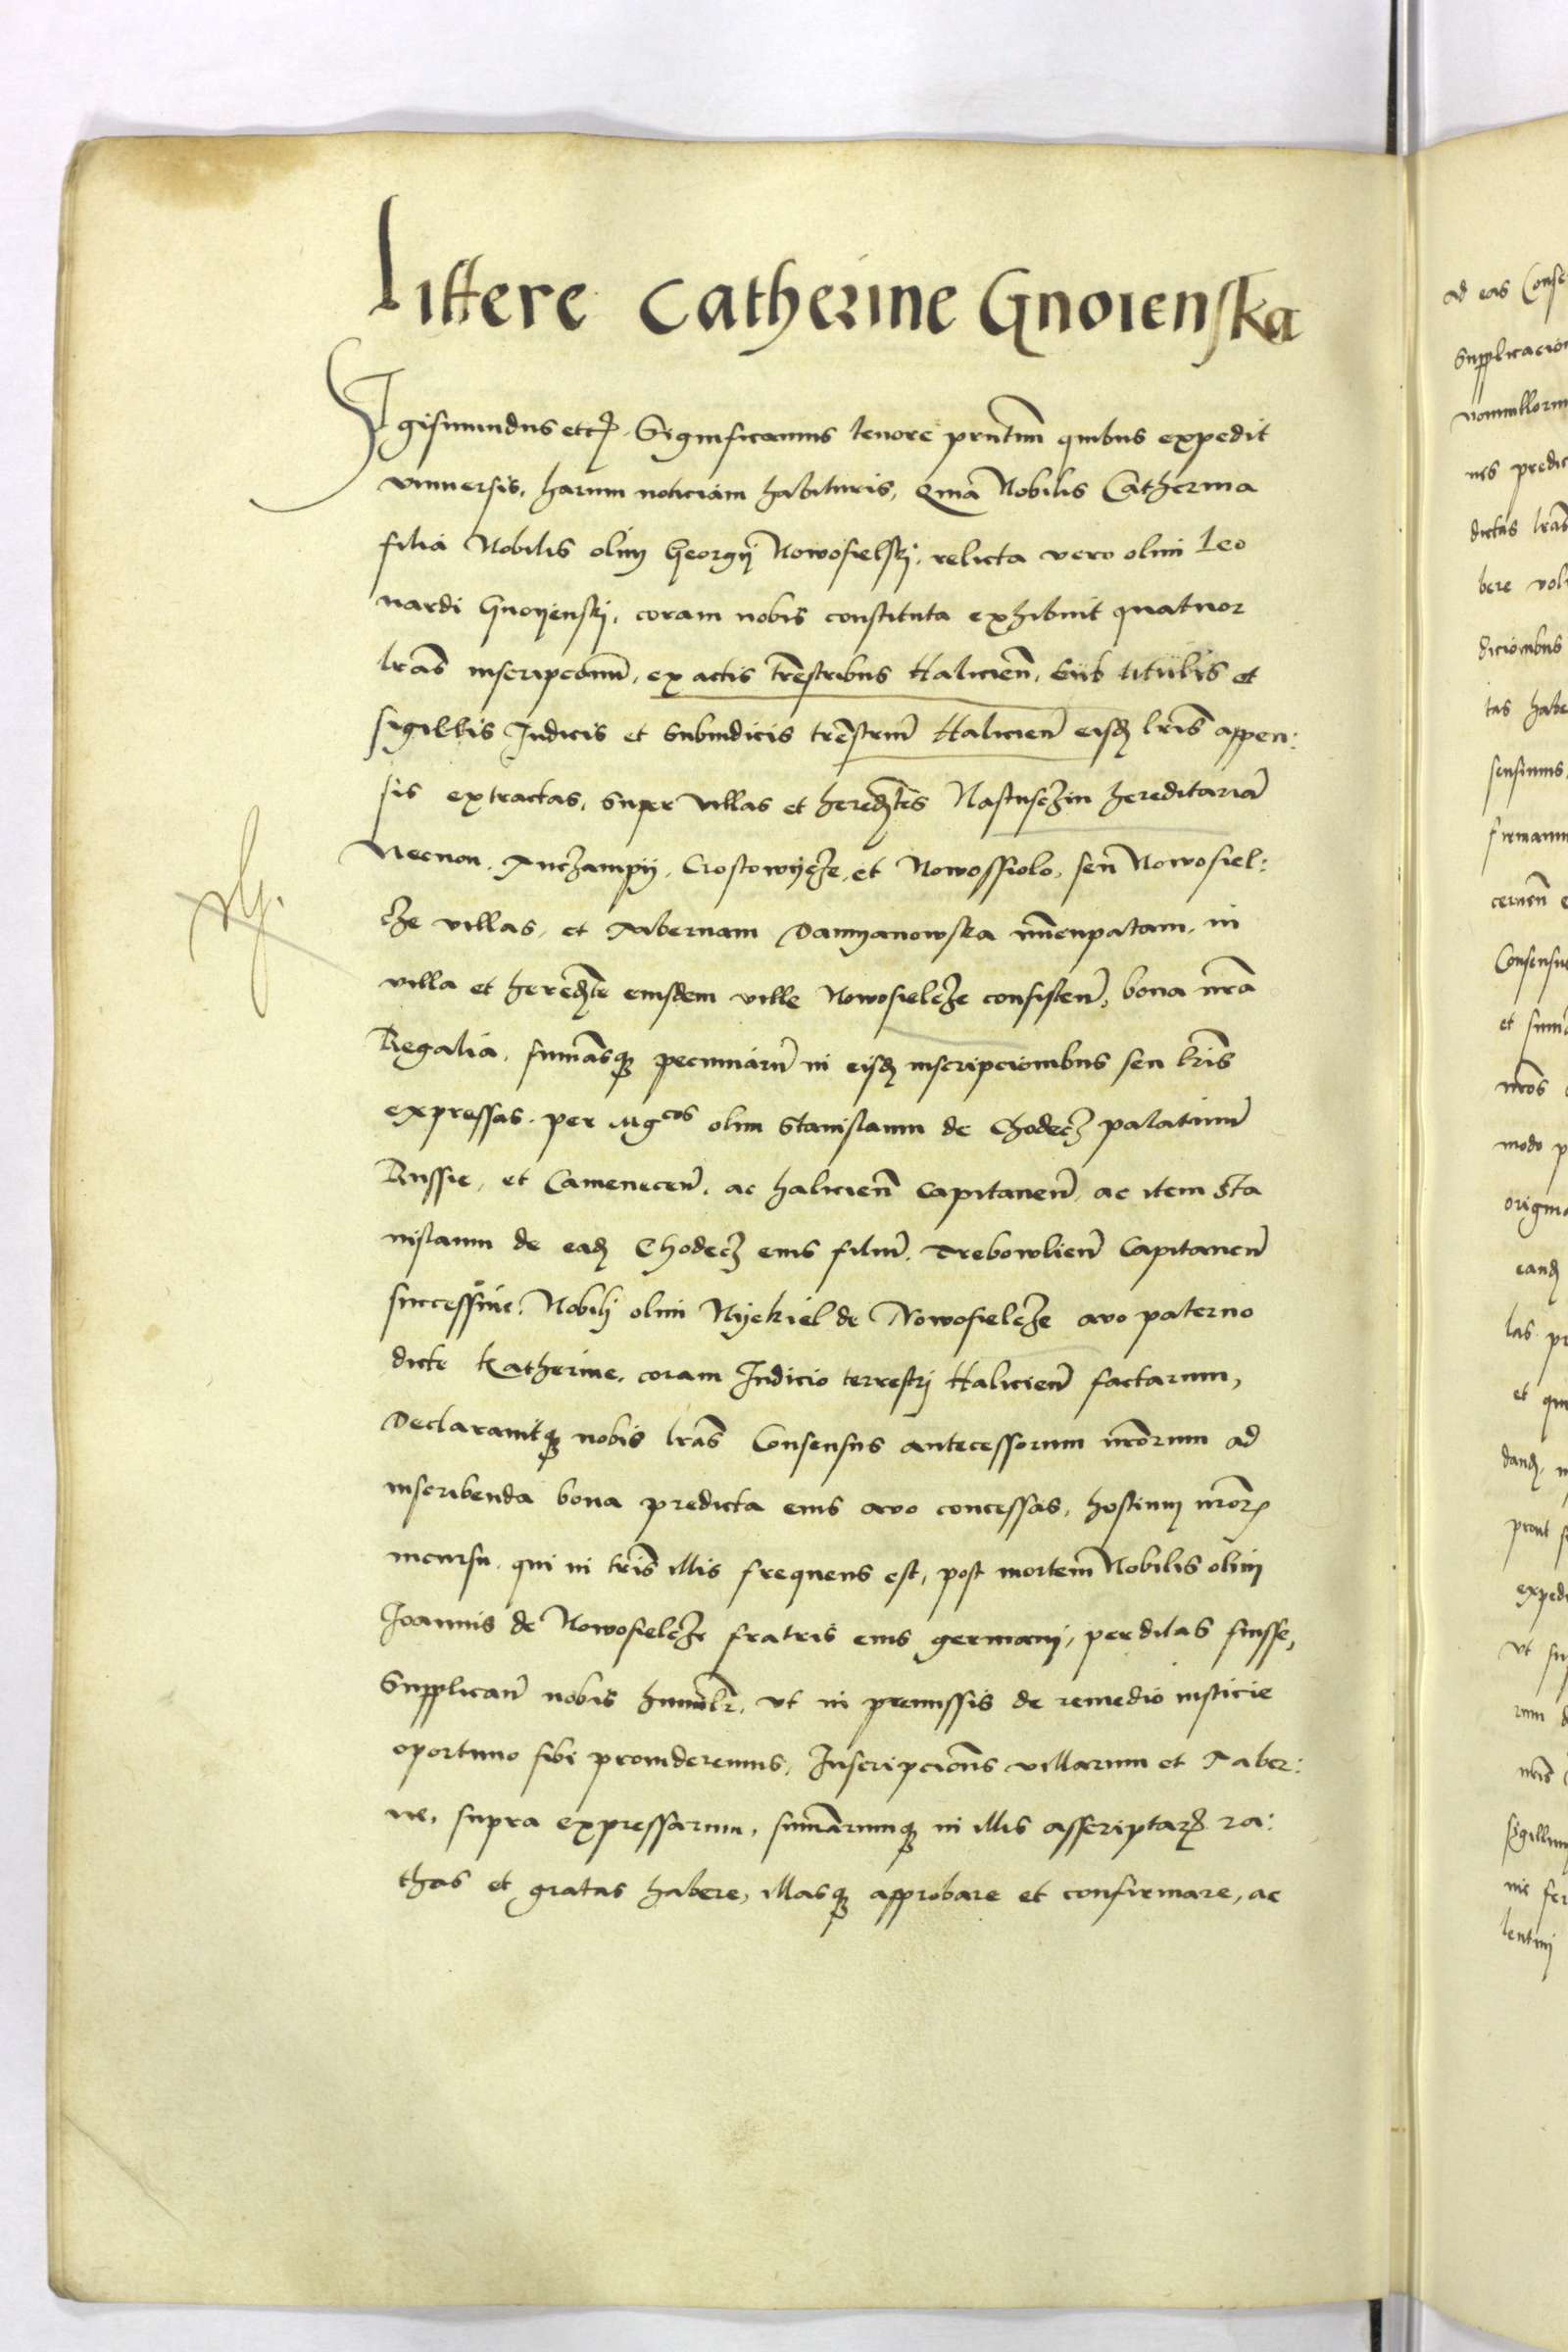 Littere Catherine Gnoienska
Sigismundus etc. Significamus tenore pñtium quibus expedit
vniuersis, harum noticiam habituris, Quia Nobilis Catherina
filia Nobilis olim Georgij Nowosielskj, relicta vero olim Leo
nardi Gnoyenskj, coram nobis constituta exhibuit quatuor
lras̃ inscripcionũ, ex actis trẽstribus Halicieñ, sub titulis et
sigillis Judicis et Subiudicis trẽstriũ Halicieñ eisdẽ lris̃ appen:
sis extractas, super villas et heredtẽs Nastasczin hereditariã
Necnon, Anczampij, Crostowijcze, et Nowossiolo, seu Nowosiel:
cze villas, et Tabernam Damyanowska nũcupatam, in
villa et heredtẽ eiusdem ville Nowosielcze consisteñ, bona nrã
Regalia, sumasq̃ pecuniarũ in eisdẽ inscripcionibus seu lris̃
expressas, per Mgcos olim Stanislaum de Chodecz palatinũ
Russie, et Cameneceñ, ac halicieñ Capitaneũ, ac item Sta
nislaum de eadẽ Chodecz eius filiũ, Trebowlieñ Capitaneũ
successiue, Nobilj olim Nyekiel de Nowosielcze auo paterno
dicte Katherine, coram Judicio terrestrj Halicieñ factarum,
Declarauitq̃ nobis lras̃ Consensus antecessorum nrõrum ad
inscribenda bona predicta eius auo concessas, hostium nrõr
incursu, qui in tris̃ illis frequens est, post mortem Nobilis olim
Joannis de Nowosielcze fratris eius germanj, perditas fuisse,
Supplicañ nobis humilr̃, vt in premissis de remedio iusticie
oportuno sibi prouideremus, Inscripcions̃ villarum et Taber:
ne, supra expressarum, sumarumq̃ in illis asscriptar ra:
thas et gratas habere, illasq̃ approbare et confirmare, ac
ad eas Conse
Supplicacion
nonnullorum
nes predic
dictas lras̃
bere vol
dicionibus
tas habe
sensimus
firmamu
Consensu
et sum
nrõs
modo p
origina
eandẽ
las pr
et qu
prout
expedi
vt su
rum
sigillum